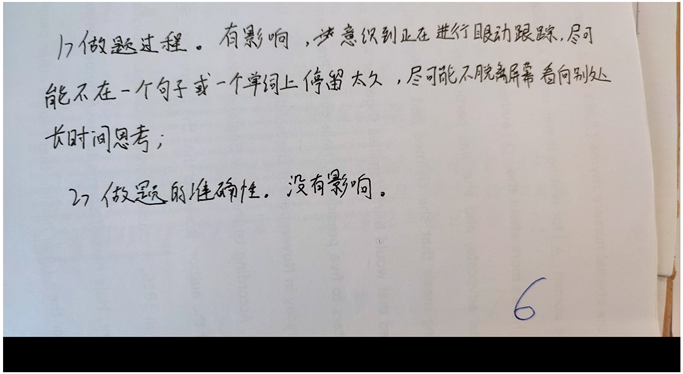 1> 做题过程。有影响，意识到正在进行眼动跟踪，尽可
能不在一个句子或一个单词上停留太久，尽可能不脱离屏幕看向别处
长时间思考；
2> 做题的准确性。没有影响。
6